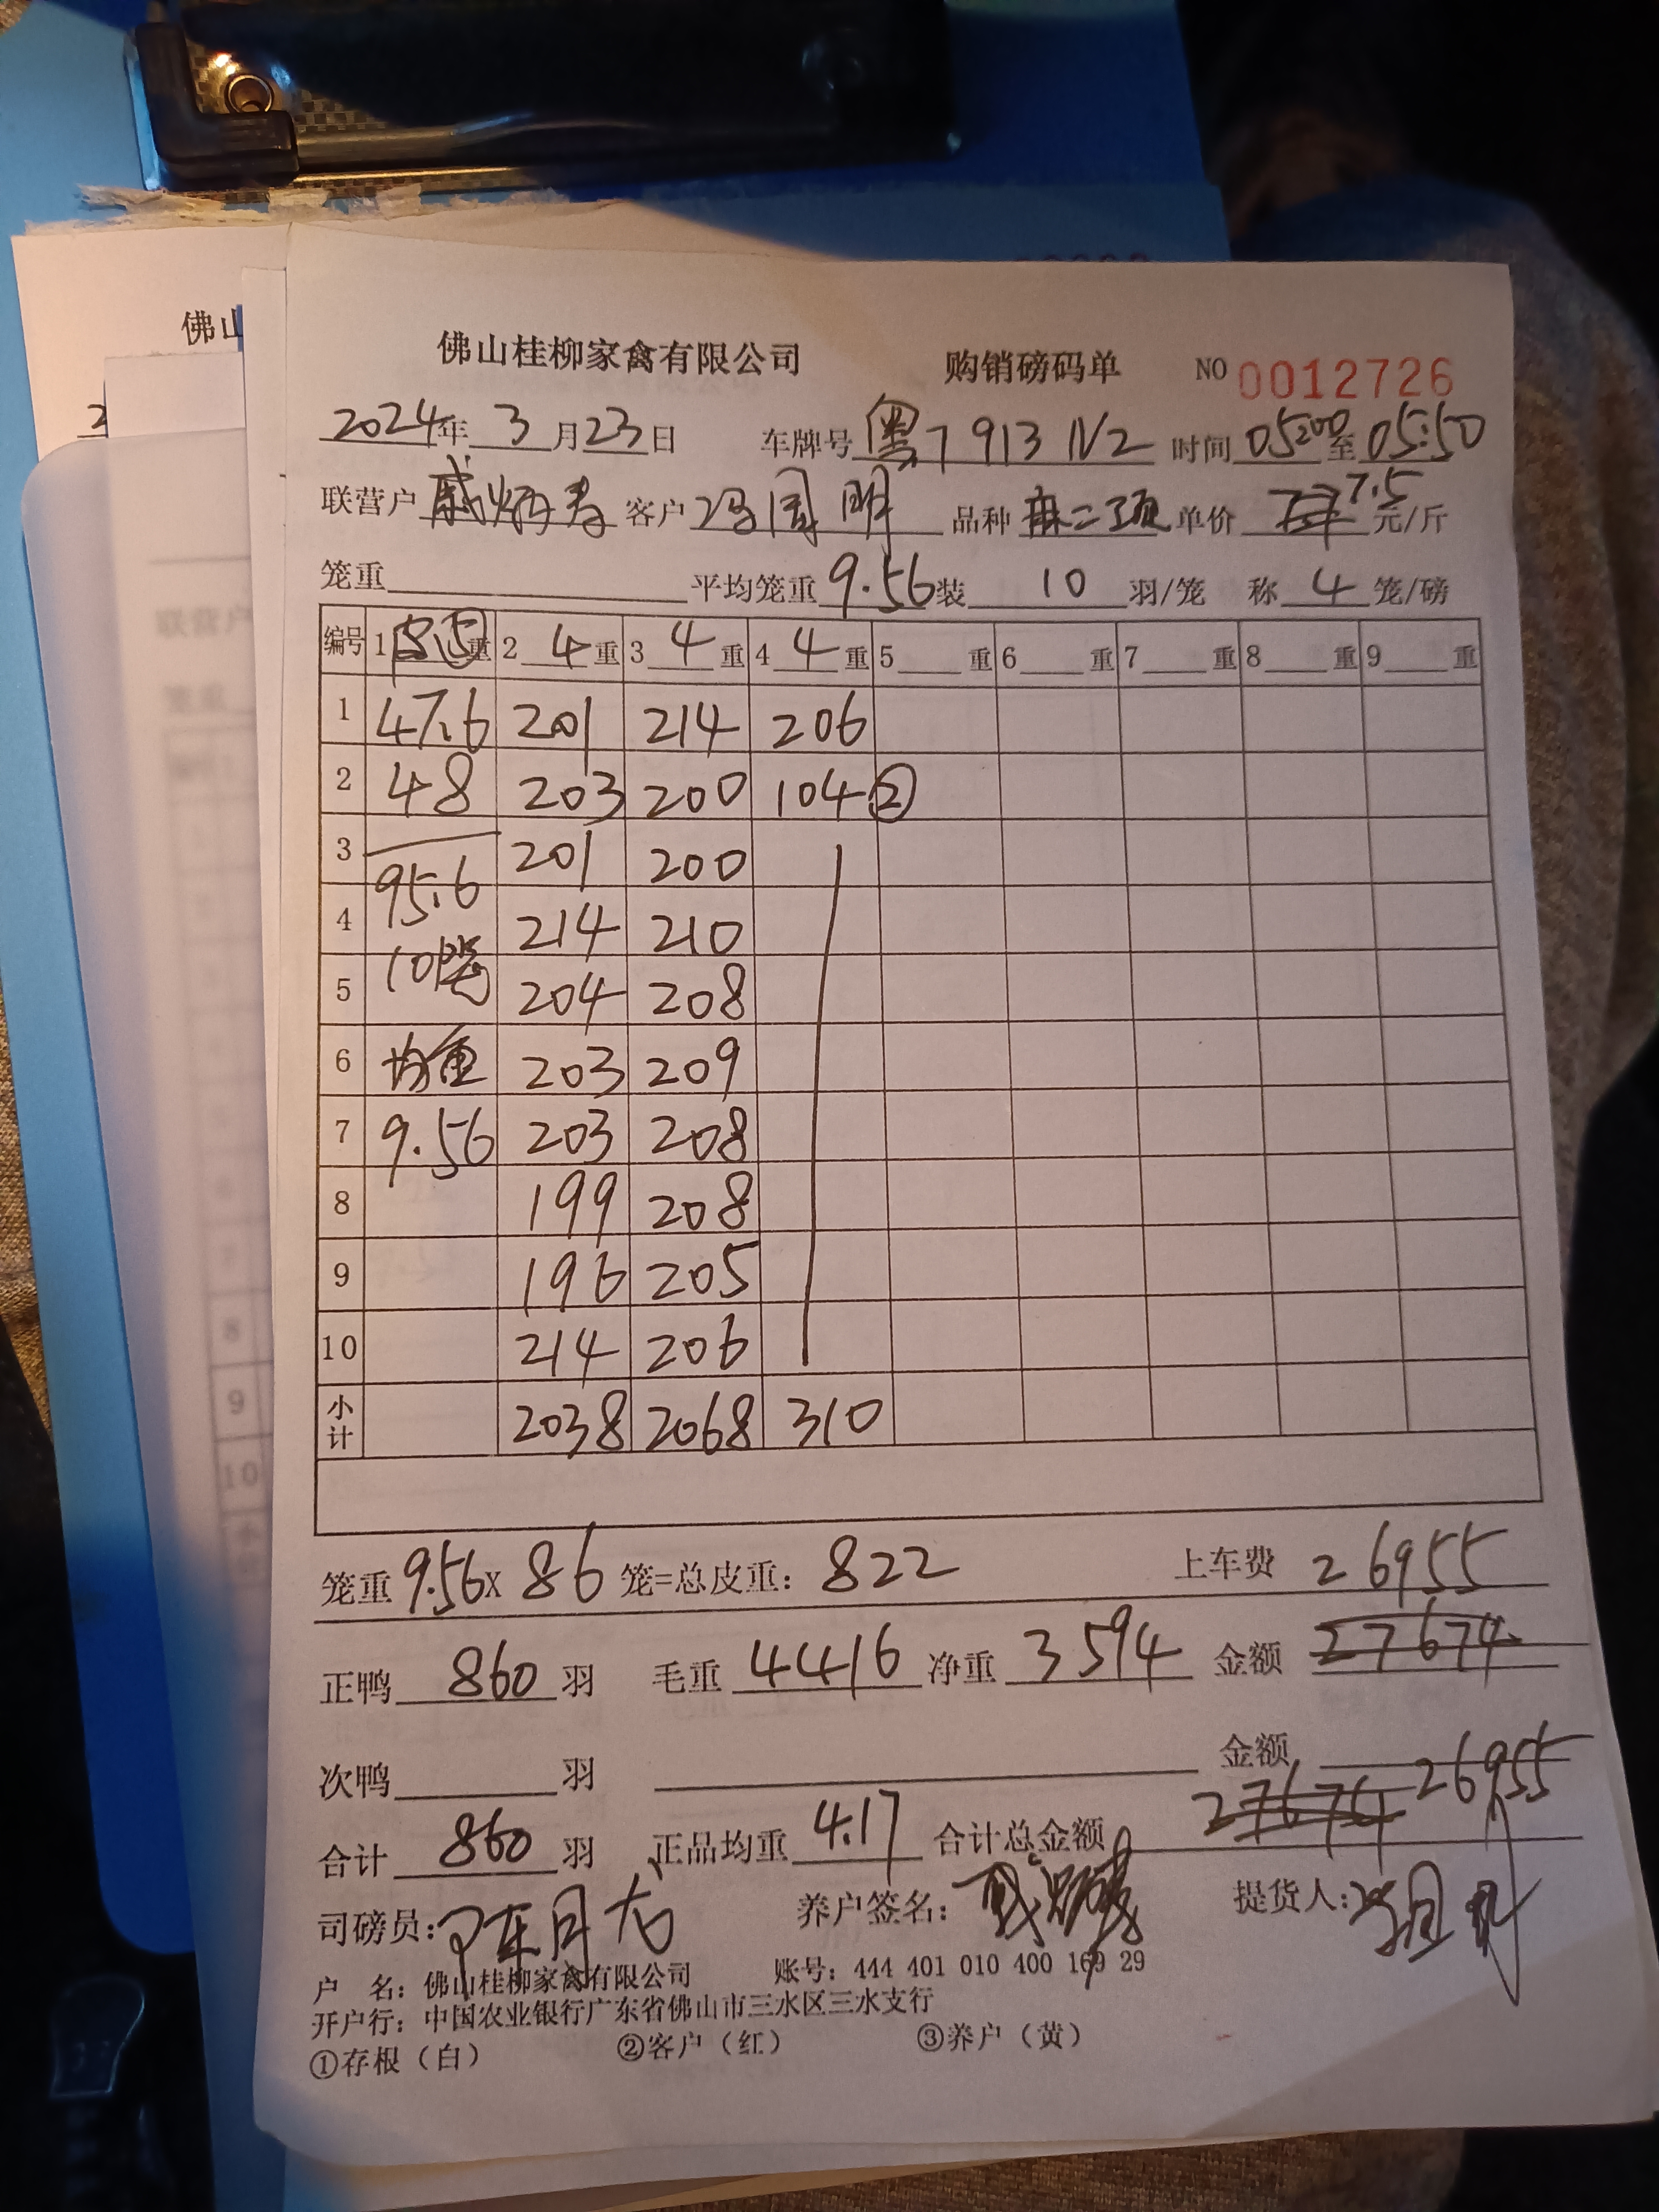 佛山
佛山桂柳家禽有限公司 购销磅码单 NO 0012726
2024年 3 月23日 车牌号 粤 7913 时间 05:00 至 05:50
联营户 戚炳寿 客户 冯周明 品种 麻二 单价 7.5 元/斤
笼重 平均笼重 9.56 装 10 羽/笼 称 4 笼/磅
编号 1 重 2 4 重 3 4 重 4 4 重 5 重 6 重 7 重 8 重 9 重
1 47.6 201 214 206
2 48 203 200 104 ②
3 201 200
95.6
4 214 210
10笼
5 204 208
6 均重 203 209
7 9.56 203 208
8 199 208
9 196 205
10 214 206
小计 2038 2068 310
笼重 9.56 X 86 笼=总皮重: 822 上车费 26955
正鸭 860 羽 毛重 4416 净重 3594 金额 27674
次鸭 羽 金额
合计 860 羽 正品均重 4.17 合计总金额 27674 26955
司磅员: 养户签名: 提货人:
户 名: 佛山桂柳家禽有限公司 账号: 444 401 010 400 169 29
开户行: 中国农业银行广东省佛山市三水区三水支行
①存根（白） ②客户（红） ③养户（黄）